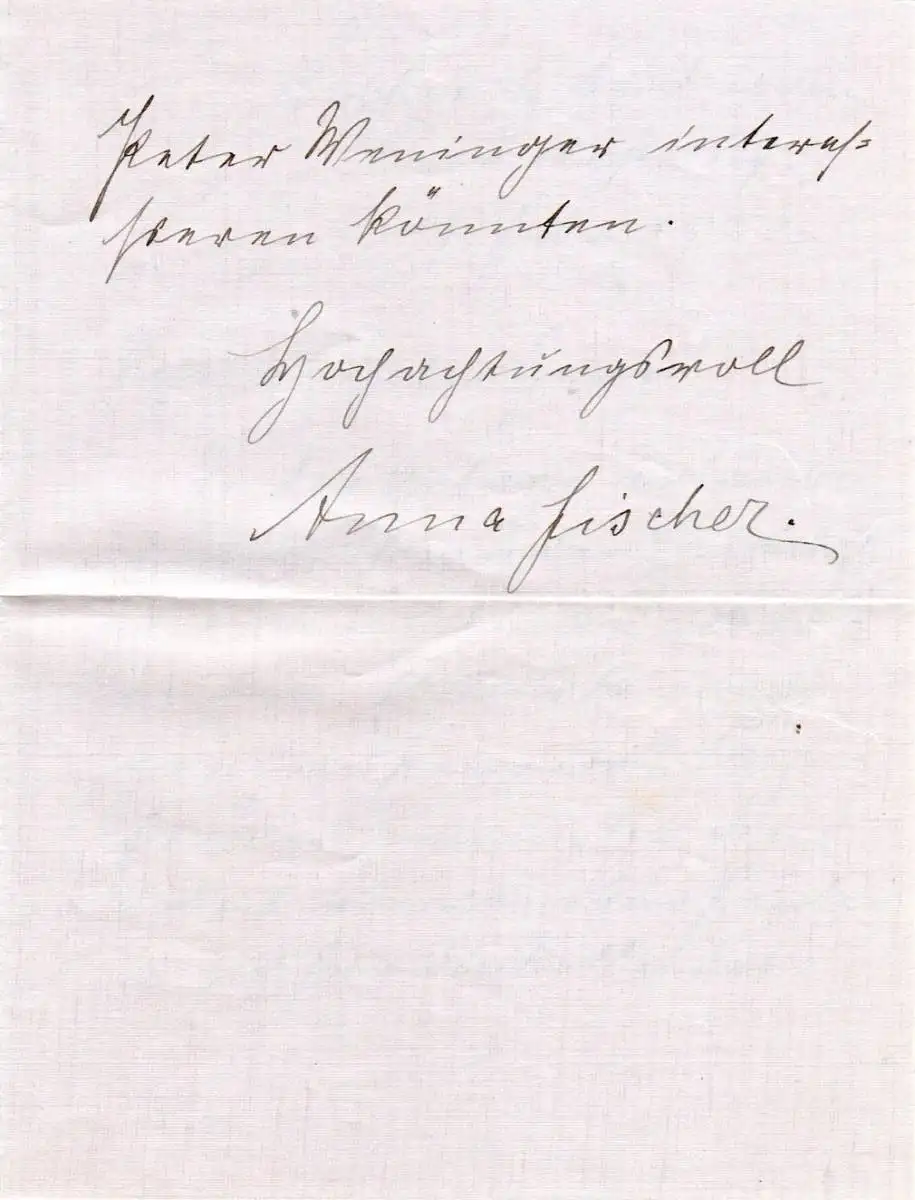 Peter Weninger interes-
sieren könnten.
Hochachtungsvoll
Anna Fischer.